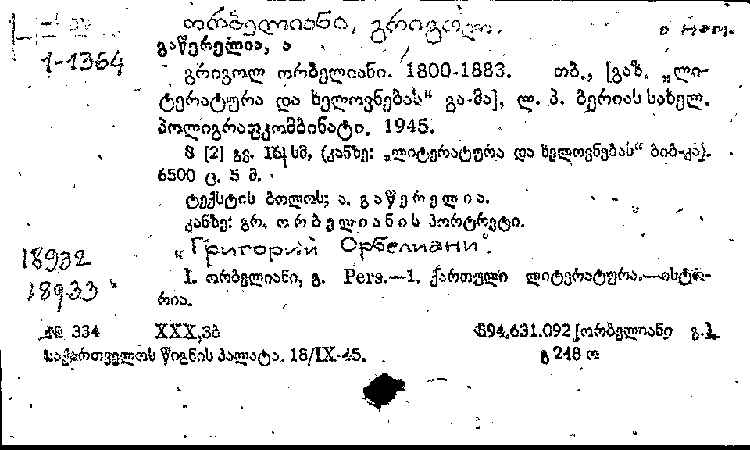 ორბელიანი, გრიგოლ.
1-1364
გაწერელია, ა
გრიგოლ ორბელიანი. 1800-1883. თბ., [გაზ. „ლი-
ტერატურა და ხელოვნებას“ გა-მა], ლ. პ. ბერიას სახელ.
პოლიგრაფკომბინატი. 1945.
8 [2] გვ. სმ, (კანზე: „ლიტერატურა და ხელოვნებას“ ბიბ-კა).
6500 ც. 5 მ.
ტექსტის ბოლოს: ა. გაწერელია.
კანზე: გრ. ორბელიანის პორტრეტი.
„Григорий Орбелиани“.
18932
I. ორბელიანი, გ. Pers.—1. ქართული ლიტერატურა.—ისტო-
18933
რია.
№ 334 XXX,3ბ 894.631.092 [ორბელიანი გ.]
საქართველოს წიგნის პალატა. 18/IX-45. გ 248 ო